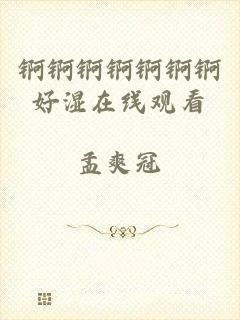 锕锕锕锕锕锕锕
好湿在线观看
孟爽冠